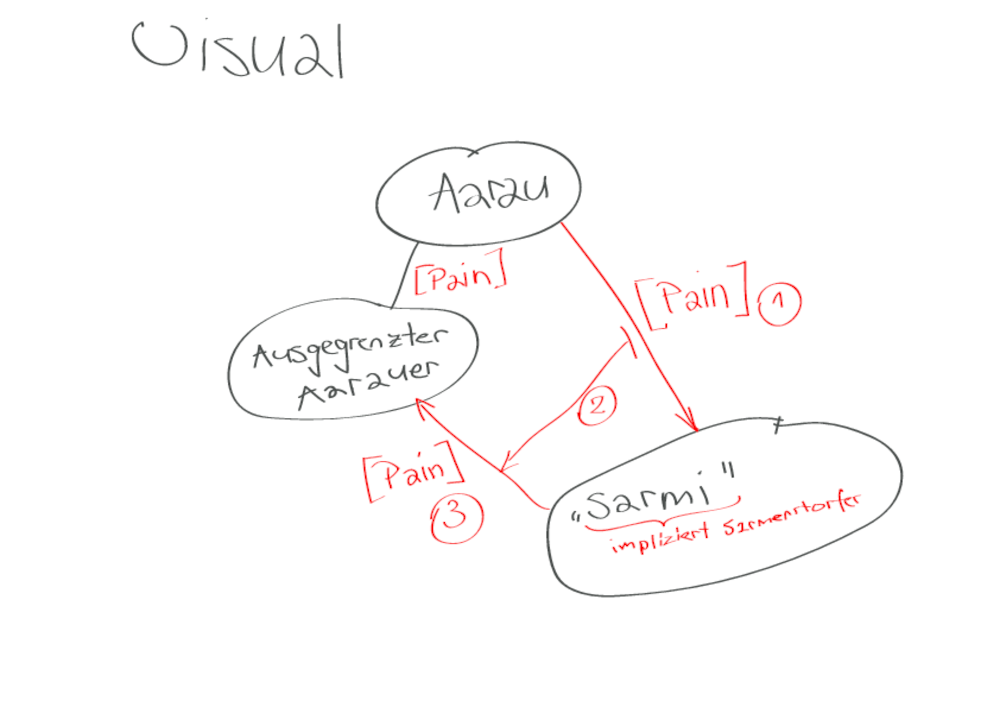 Visual
Aarau
[Pain]
[Pain] 1
Ausgegrenzter
Aarauer
2
[Pain]
3
„Sarmi"
impliziert Sarmenstorfer